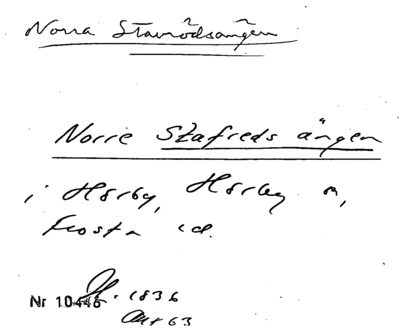 Norra Stavrödsängen
Norre Stafreds ängen
i Hörby, Hörby sn,
Frosta hd.
Nr 10446 1836
Akt 63